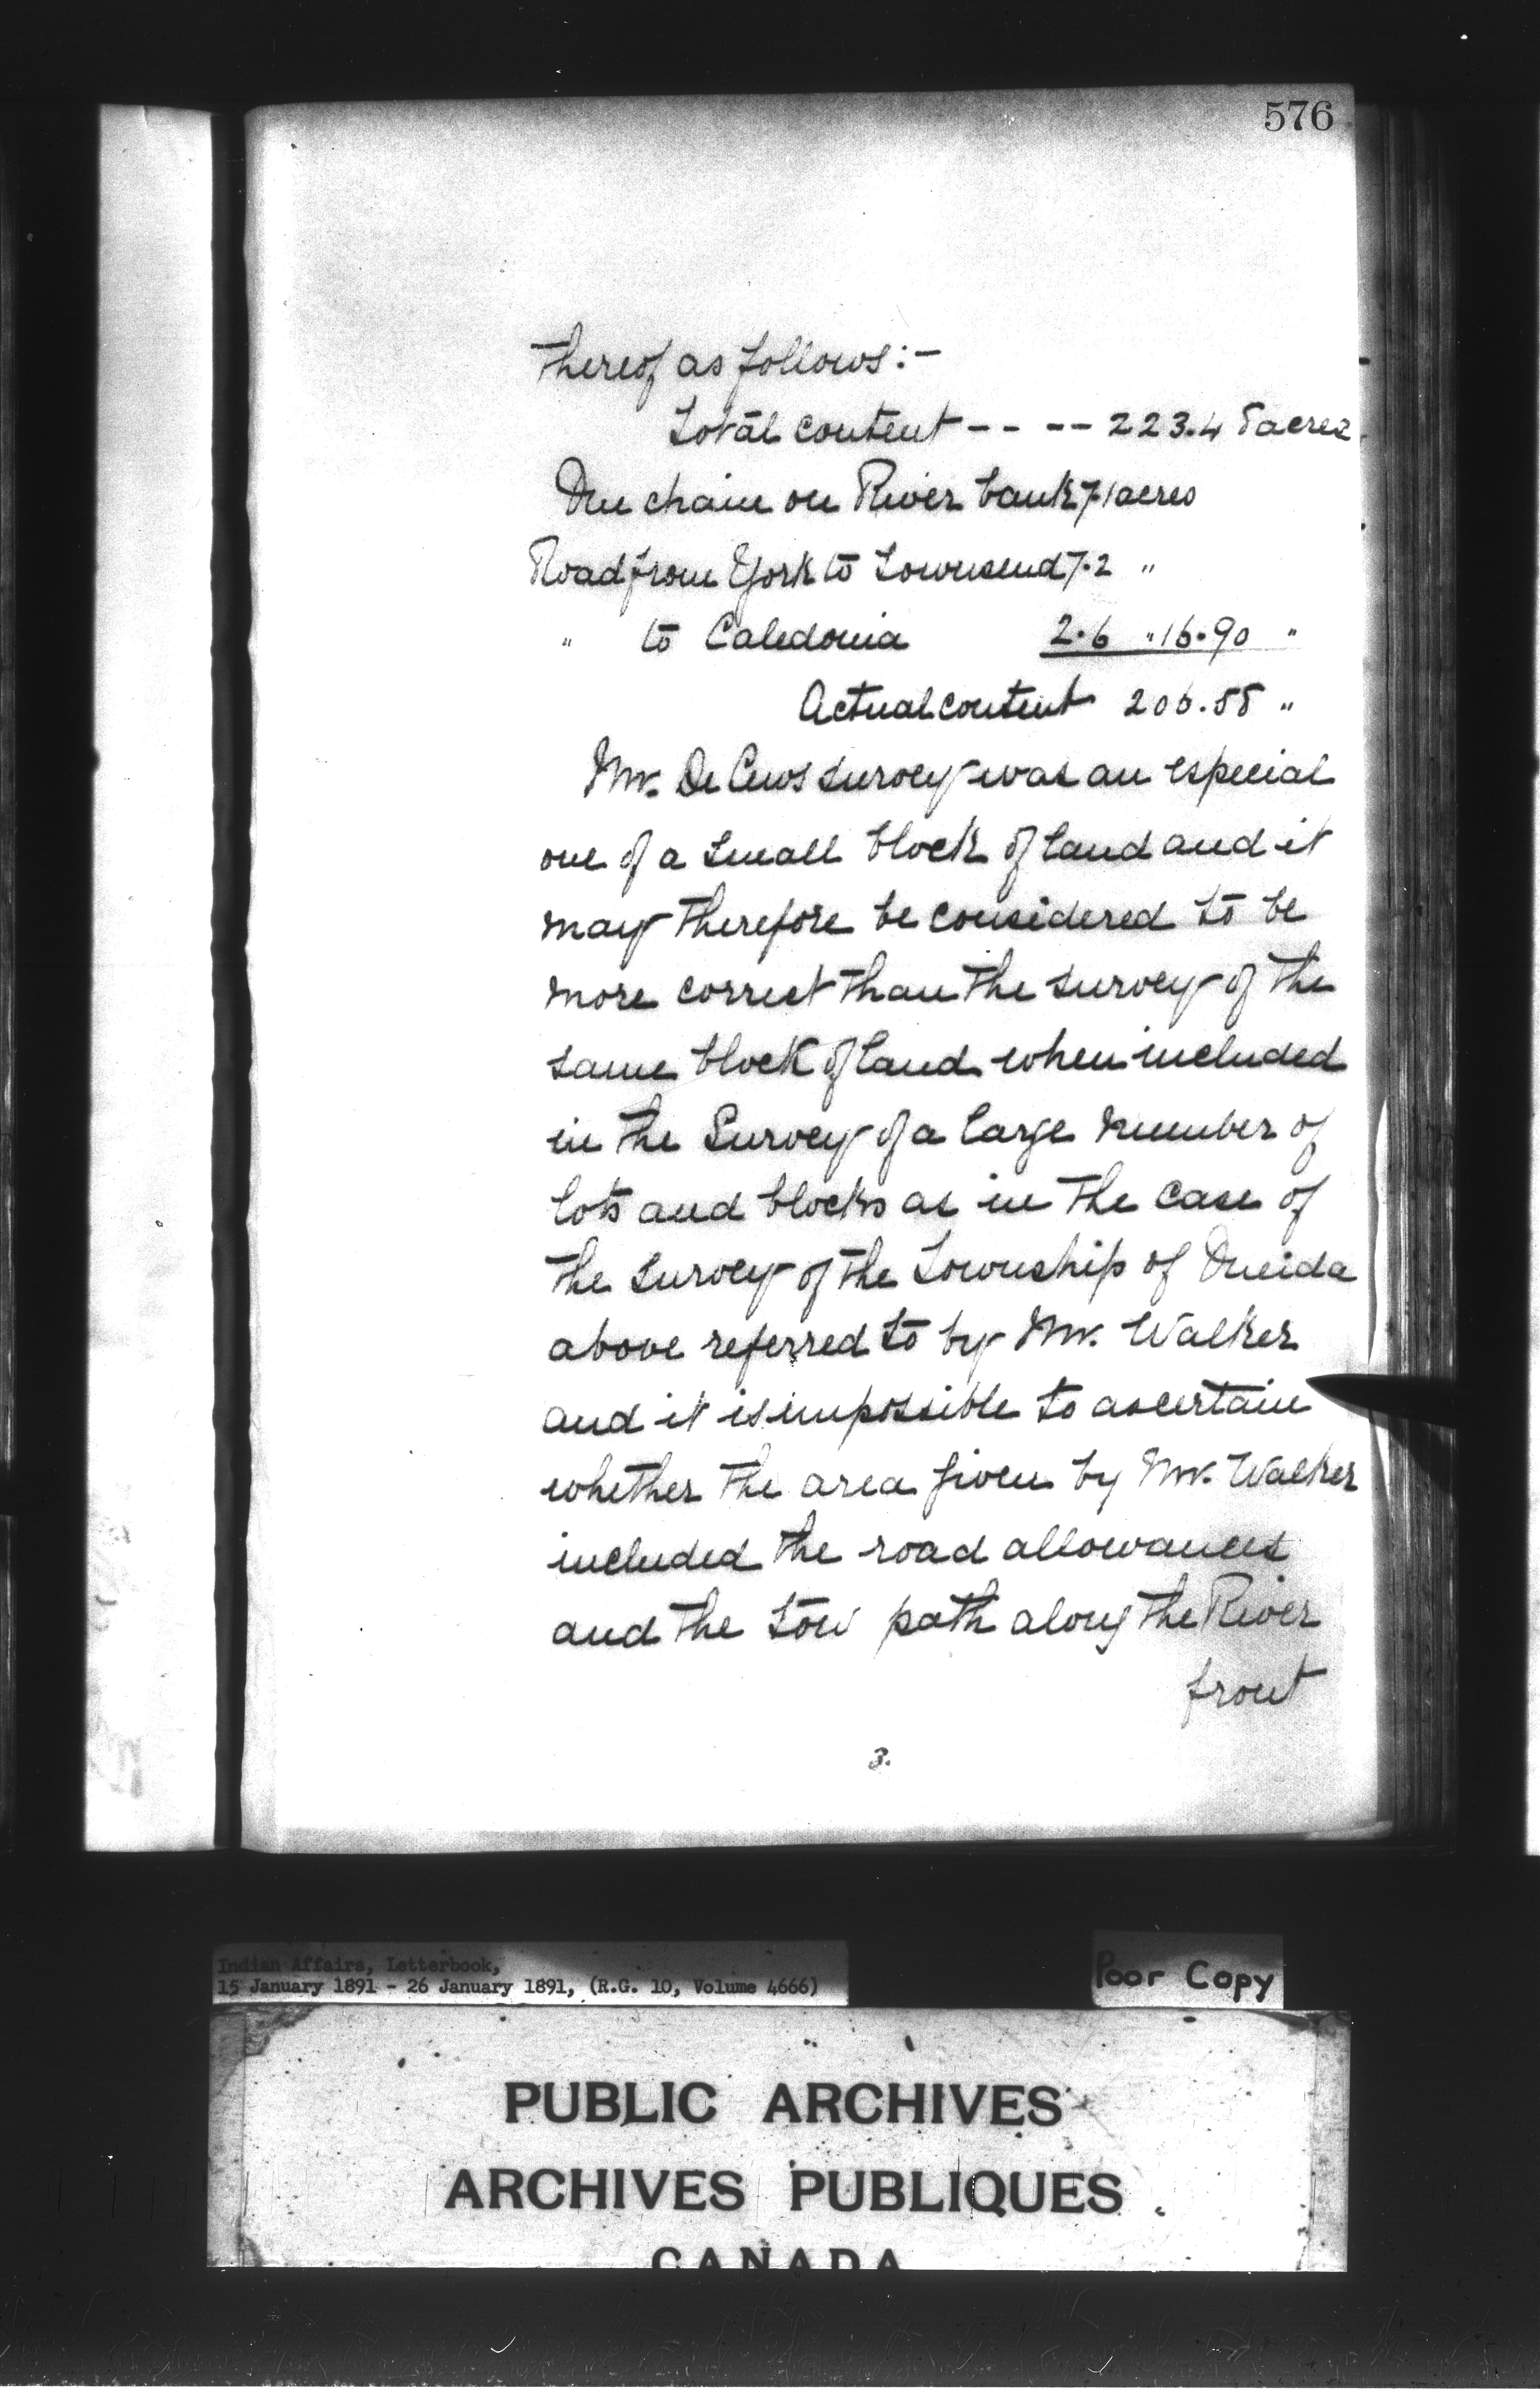 576
thereof as follows:-
Total content - - - - 223.45 acres
One chain on River bank 7.1 acres
Road from York to Townsend 7.2 "
" to Caledonia 2.6 " 16.90 "
Actual content 206.55 "
Mr. De Cews survey was an especial
one of a small block of land and it
may therefore be considered to be
more correct than the survey of the
same block of land when included
in the Survey of a large number of
lots and blocks as in the case of
the survey of the Township of Oneida
above referred to by Mr. Walker
and it is impossible to ascertain
whether the area given by Mr. Walker
included the road allowances
and the tow path along the River
front
3.
Indian Affairs, Letterbook,
15 January 1891 - 26 January 1891, (R.G. 10, Volume 4666)
Poor Copy
PUBLIC ARCHIVES
ARCHIVES PUBLIQUES
CANADA